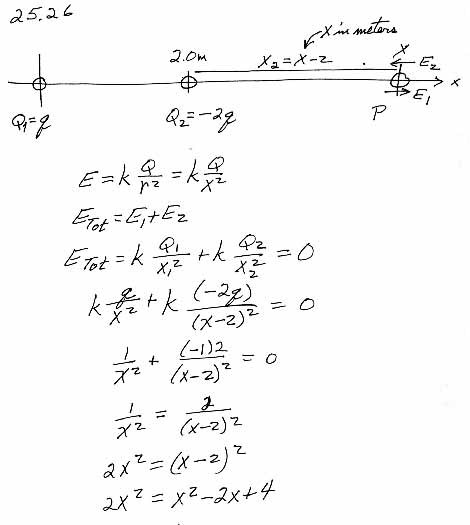 25.26
x in meters
2.0m X₂ = X-2 X E₂
x
E₁
Q₁=q Q₂=-2q P
E = k Q/r² = k Q/x²
E_Tot = E₁+E₂
E_Tot = k Q₁/x₁² + k Q₂/x₂² = 0
k q/x² + k (-2q)/(x-2)² = 0
1/x² + (-1)2/(x-2)² = 0
1/x² = 2/(x-2)²
2x² = (x-2)²
2x² = x²-2x+4